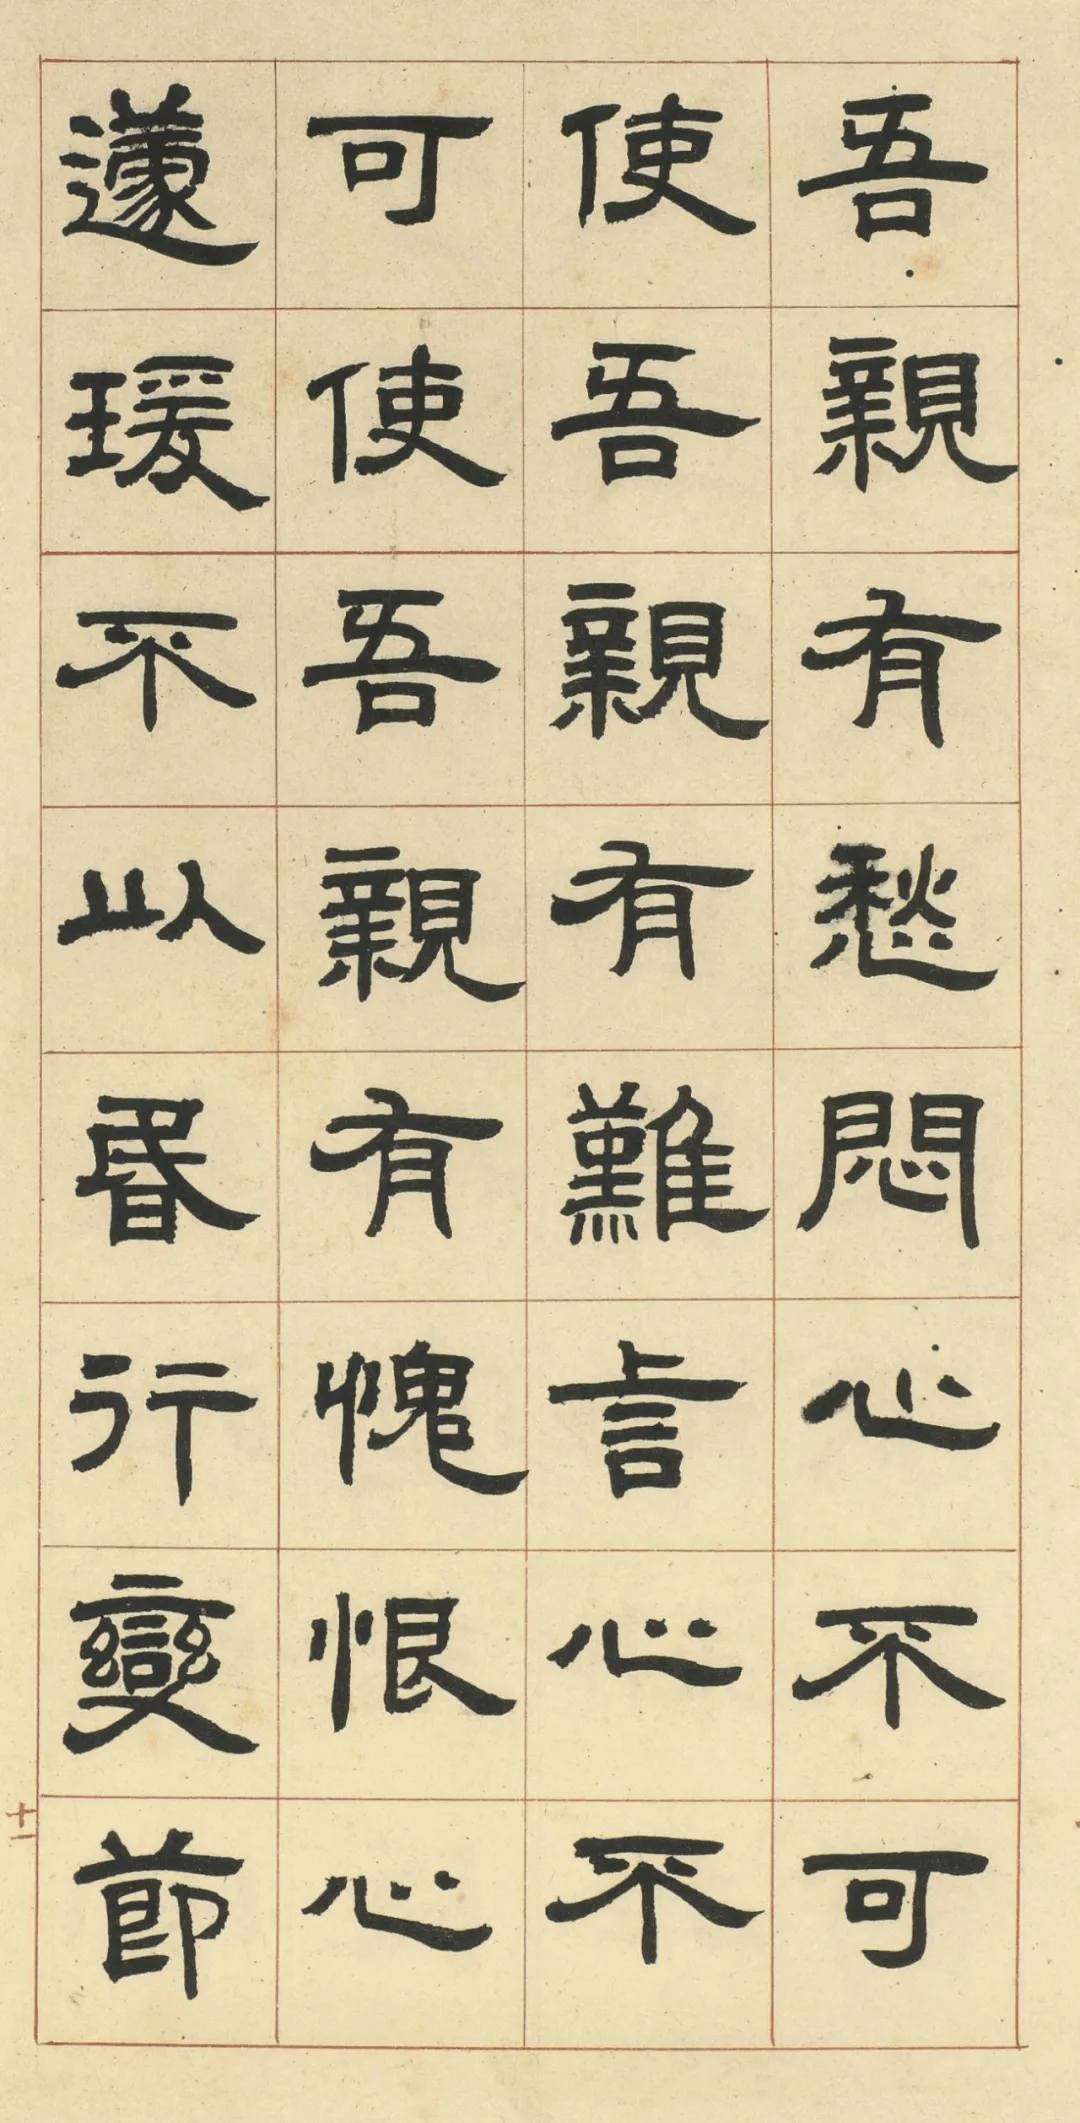 吾親有愁悶心不可
使吾親有難言心不
可使吾親有愧恨心
蘧瑗不以昬行變節